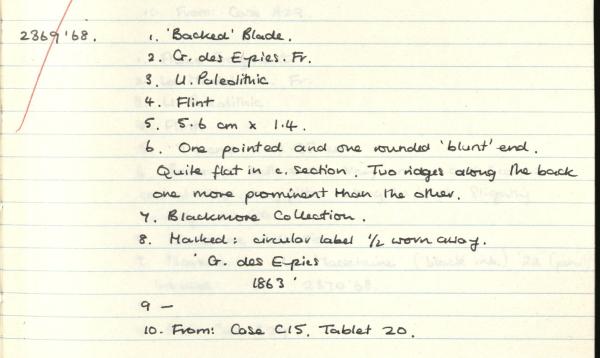 2369'68.
1. 'Backed' Blade.
2. Gr. des Eyries. Fr.
3. U. Paleolithic
4. Flint
5. 5.6 cm x 1.4.
6. One pointed and one rounded 'blunt' end.
Quite flat in c. section. Two ridges along the back
one more prominent than the other.
7. Blackmore Collection.
8. Marked: circular label 1/2 worn away.
'G. des Eyries
1863'
9 —
10. From: Case C15. Tablet 20.